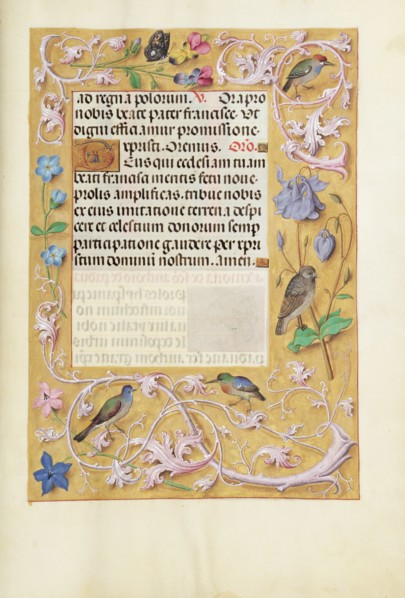 ad regna polorum. V. Ora pro
nobis beate pater francisce. Vt
digni efficiamur promissione
xpristi. Oremus. Oro.
Deus qui ecclesiam tuam
beati francisci meritis fetu noue
prolis amplificas. tribue nobis
ex eius imitatione terrena despi
cere et celestium donorum semp
participatione gaudere per xpri
stum dominum nostrum. amen.